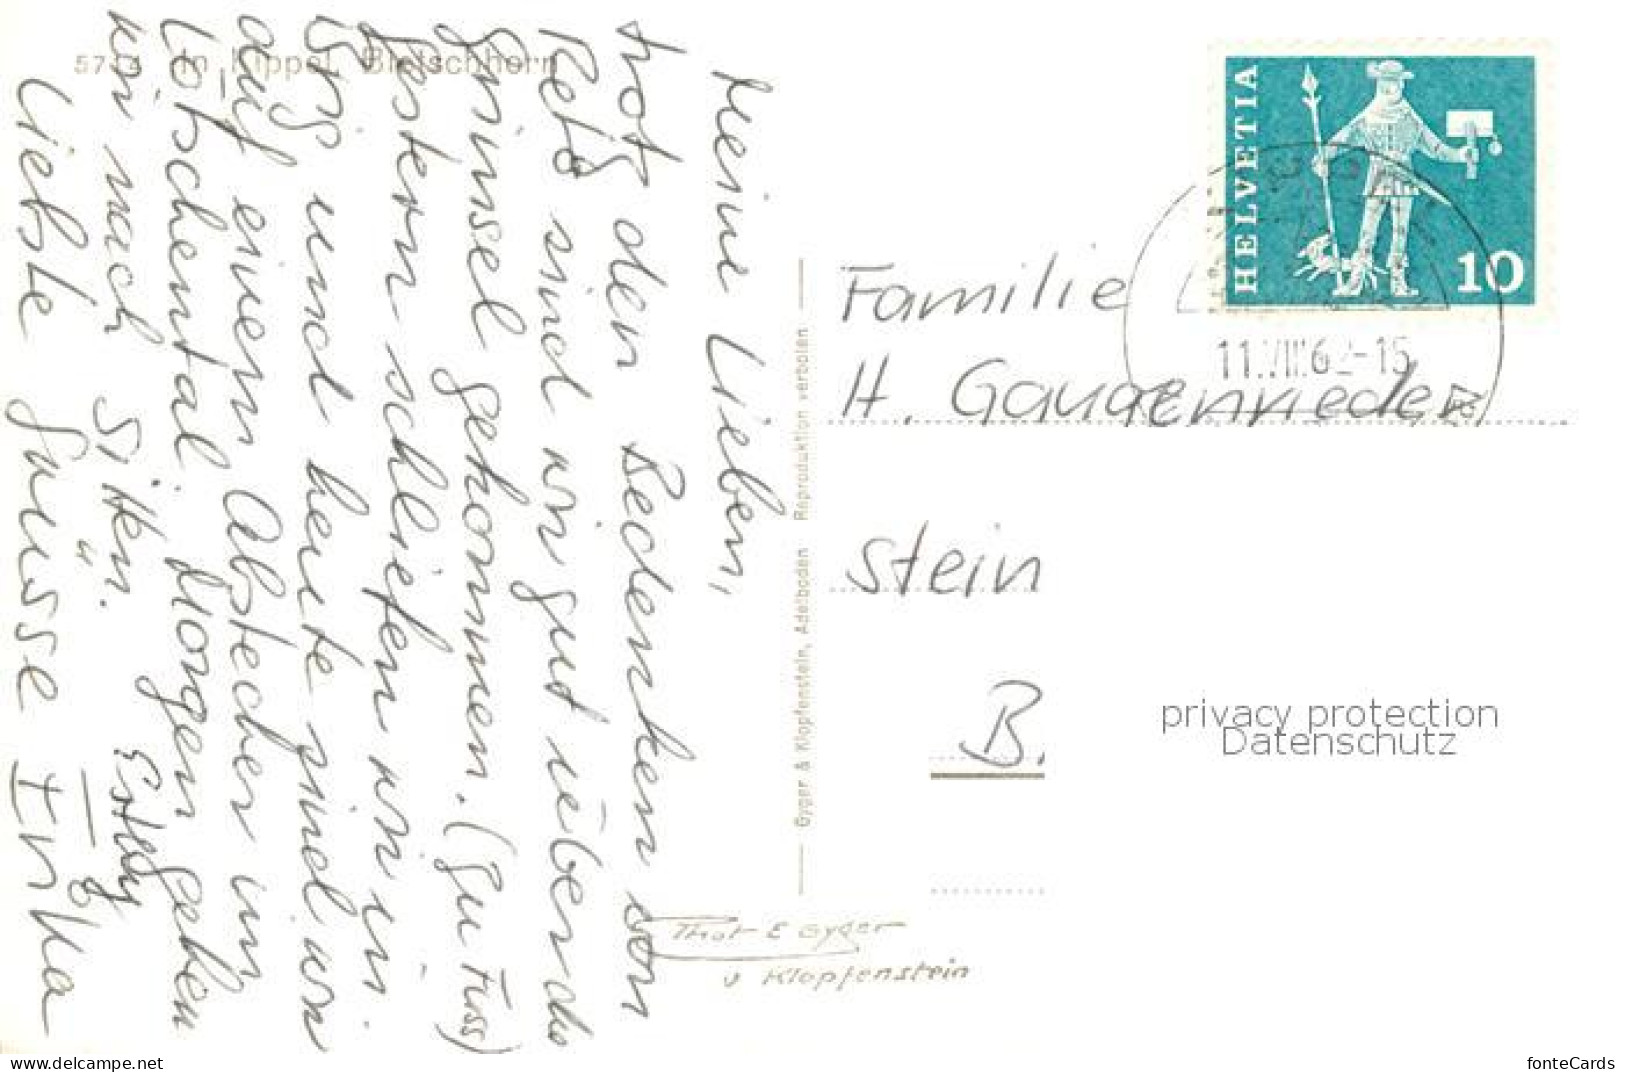 5714 In Kippel, Bietschhorn
Meine Lieben,
trotz den Bedenken von
Reto sind wir gut über de
Grimsel gekommen. (zu Fuss)
Gestern schliefen wir in
und heute sind wir
auf einem Abstecher im
Lötschental. Morgen gehen
wir nach Sitten.
Liebste Grüsse
Gyger & Klopfenstein, Adelboden Reproduktion verboten
Phot E Gyger
u Klopfenstein
HELVETIA
10
11.VIII.62-15
Familie
H. Gaugenrieder
Stein
B.
privacy protection
Datenschutz
https://www.ansichtskarten-center.de/
fonteCards